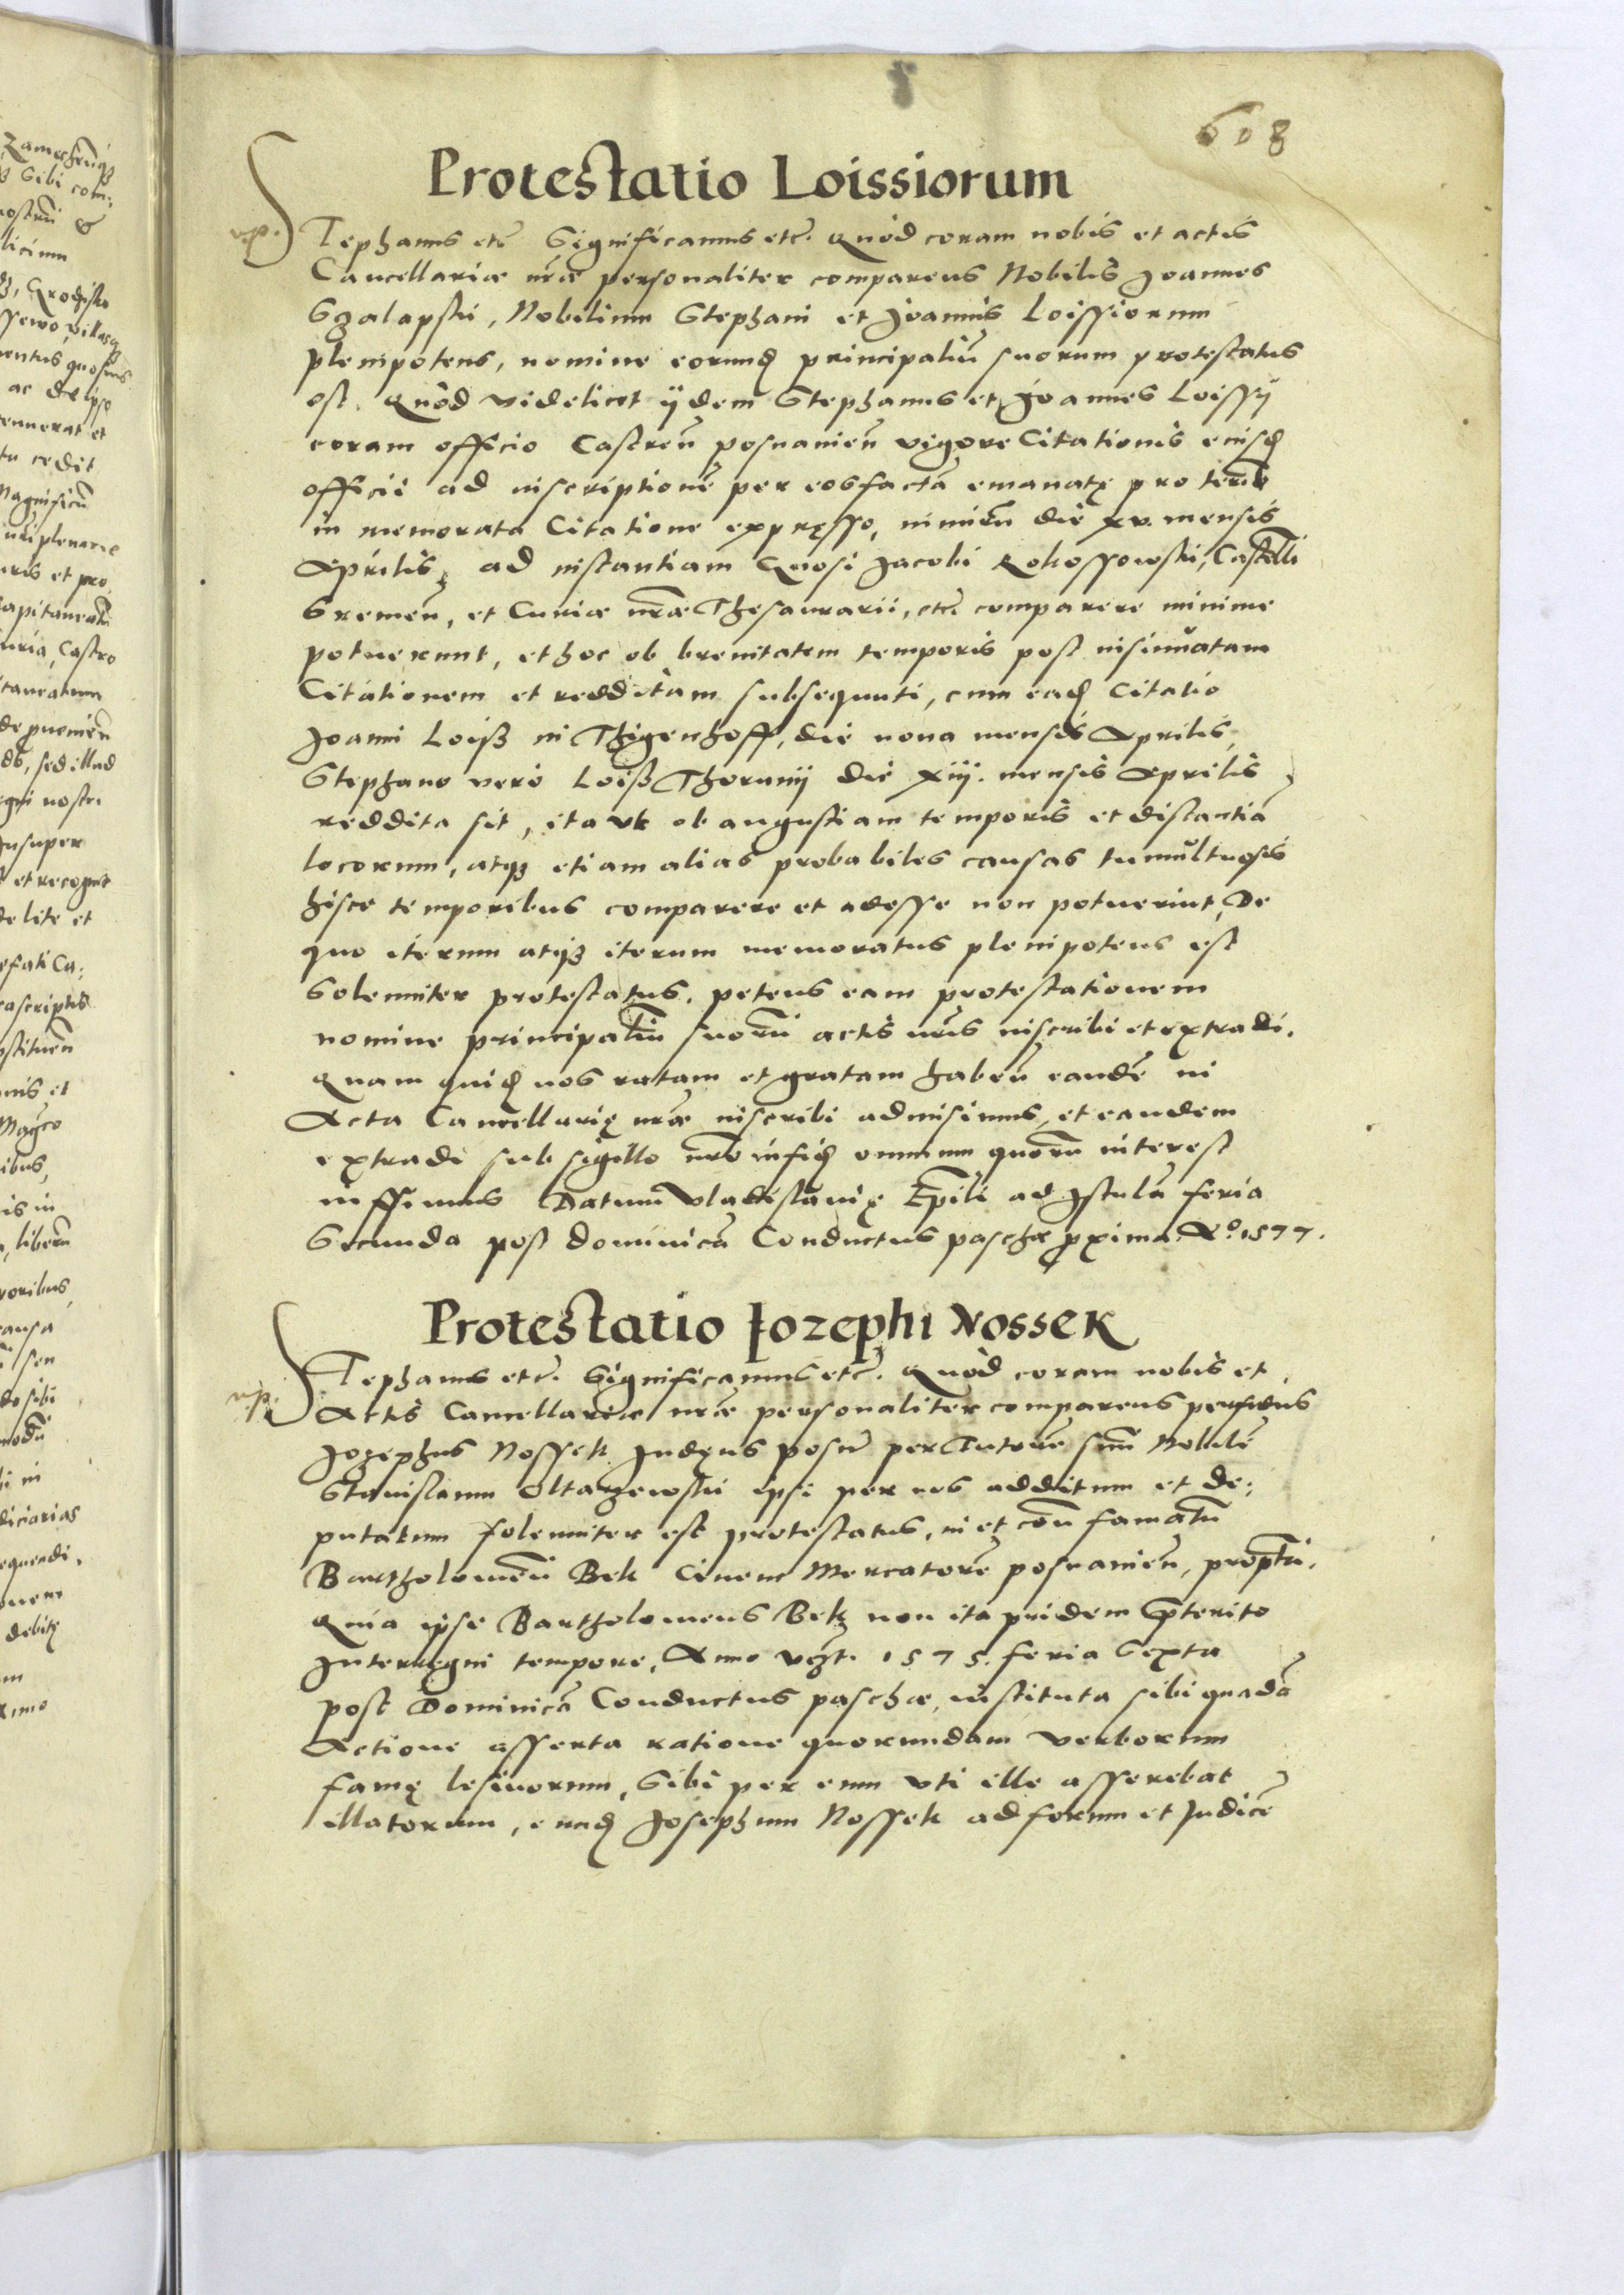 608
Protestatio Loissiorum
Stephanus etc̃ Significamus etc̃. Quòd coram nobis et actis
Cancellariæ nr̃æ personaliter comparens Nobilis Joannes
Szalapski, Nobilium Stephani et Joannis Loissiorum
plenipotens, nomine eorundẽ principaliũ suorum protestatus
est. Quòd videlicet ijdem Stephanus et Joannes Loissij
coram officio Castreñ posnanieñ vigore Citationis eiusdẽ
officii ad inscriptionẽ per eos factã emanatę pro termĩo
in memorata Citatione expręsso, nimirũ die xv. mensis
Aprilis, ad instantiam Gnosi Jacobi Rokossowski, Castelli
Sremeñ, et Curiæ nr̃æ Thesaurarii, etc̃. comparere minime
potuerunt, et hoc ob breuitatem temporis post insinuatam
Citationem et redditam subsequuti, cum eadẽ Citatio
Joanni Loiss in Thigenhoff, die nona mensis Aprilis,
Stephano verò Loiss Thorunij die xiij. mensis Aprilis
reddita sit, ita vt ob angustiam temporis et distantiã
locorum, atq̃ etiam alias probabiles causas tumultuosis
hisce temporibus comparere et adesse non potuerint, De
quo iterum atq̃ iterum memoratus plenipotens est
Solenniter protestatus, petens eam protestationem
nomine principaliũ suorũ actis nr̃is inscribi et extradi.
Quam quidẽ nos ratam et gratam habeñ eandẽ in
Acta Cancellarię nr̃æ inscribi admisimus, et eandem
extradi sub sigillo nr̃o in fidẽ omnium quorũ interest
iussimus Datum Vladislauię Ep̃ili ad Istulã feria
Secunda post dominicã Conductus paschæ proxima. Aº. 1577.
Protestatio Jozephi Nossek
Stephanus etc̃. Significamus etc̃. Quòd coram nobis et
Actis Cancellariæ nr̃æ personaliter comparens perfidus
Jozephus Nossek Judęus posn̄ per Tutorẽ suũ Nobilẽ
Stanislaum Oltarzewski ipsi per nos additum et de:
putatum solenniter est protestatus, in et coñ famatũ
Bartholomeũ Bek Ciuem Mercatorẽ posnanieñ, propterea.
Quia ipse Bartholomeus Bek non ita pridem p̃terito
Interregni tempore, Anno vz̃t. 1575. feria Sexta
post Dominicã Conductus paschæ, instituta sibi quadã
Actione asserta ratione quorundam verborum
famę lesiuorum, Sibi per eum vti ille asserebat
illatorum, eundẽ Josephum Nossek ad forum et Judicẽ